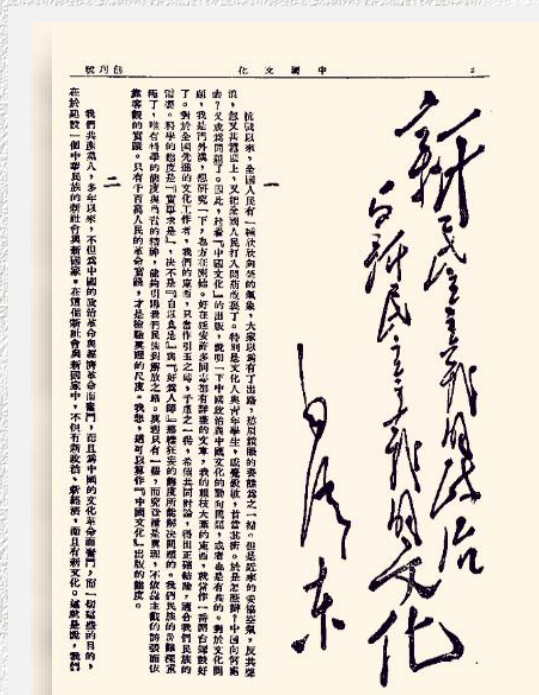 2
中國文化
創刊號
新民主主義的政治
與新民主主義的文化
毛澤東
一
抗戰以來,全國人民有一種欣欣向榮的氣象,大家以為有了出路,愁眉鎖眼的姿態為之一掃。但是近來的妥協空氣,反共聲
浪,忽又甚囂塵上,又把全國人民打入悶葫蘆裏了。特別是文化人與青年學生,感覺銳敏,首當其衝。於是怎麼辦?中國向何處
去?又成為問題了。因此,趁着『中國文化』的出版,說明一下中國政治與中國文化的動向問題,或者也是有益的。對於文化問
題,我是門外漢,想研究一下,也方在開始。好在延安許多同志都有詳盡的文章,我的粗枝大葉的東西,就當作一番開台鑼鼓好
了。對於全國先進的文化工作者,我們的東西,只當作引玉之磚,千慮之一得,希望共同討論,得出正確結論,適合我們民族的
需要。科學的態度是『實事求是』,決不是『自以為是』與『好為人師』那樣狂妄的態度所能解決問題的。我們民族的災難深重
極了,唯有科學的態度與負責的精神,能夠引導我們民族到解放之路。真理只有一個,而究竟誰是真理,不依靠主觀的誇張而依
靠客觀的實踐。只有千百萬人民的革命實踐,才是檢驗真理的尺度。我想,這可以算作『中國文化』出版的態度。
二
我們共產黨人,多年以來,不但為中國的政治革命與經濟革命而奮鬥,而且為中國的文化革命而奮鬥,而一切這些的目的,
在於建設一個中華民族的新社會與新國家。在這個新社會與新國家中,不但有新政治,新經濟,而且有新文化。這就是說,我們